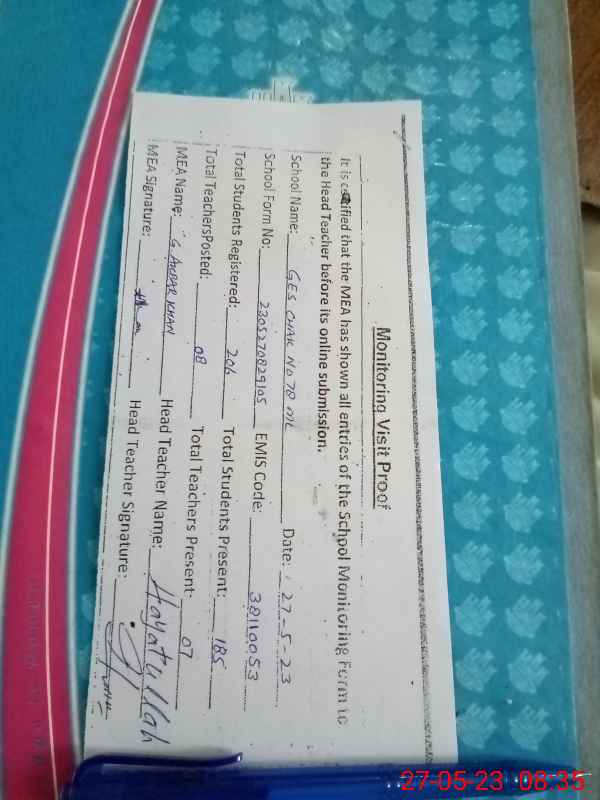 Monitoring Visit Proof
It is certified that the MEA has shown all entries of the School Monitoring Form to
the Head Teacher before its online submission.
School Name: GES CHAK NO 78 ML Date: 27-5-23
School Form No: 2305270829105 EMIS Code: 38110053
Total Students Registered: 206 Total Students Present: 185
Total TeachersPosted: 08 Total Teachers Present: 07
MEA Name: KHAN Head Teacher Name: Hayatullah
MEA Signature: Head Teacher Signature:
27-05-23 08:35